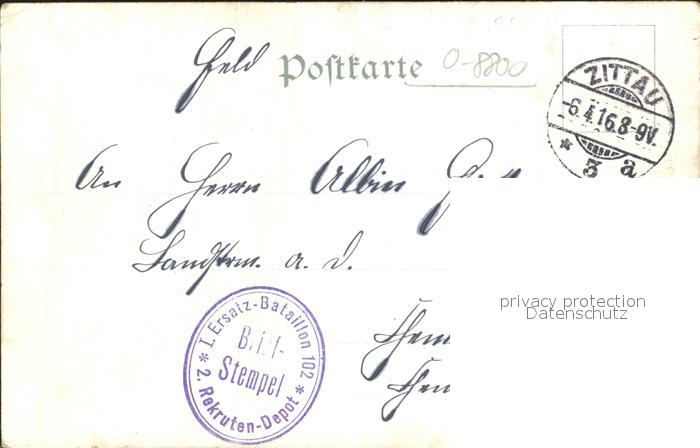 Feld Postkarte 0-8800
ZITTAU
-6.4.16.8-9V.
* 3 a
An Herrn Albin
Landstrm. a. D.
privacy protection
Datenschutz
I. Ersatz-Bataillon 102
Brief-
Stempel
* 2. Rekruten-Depot *